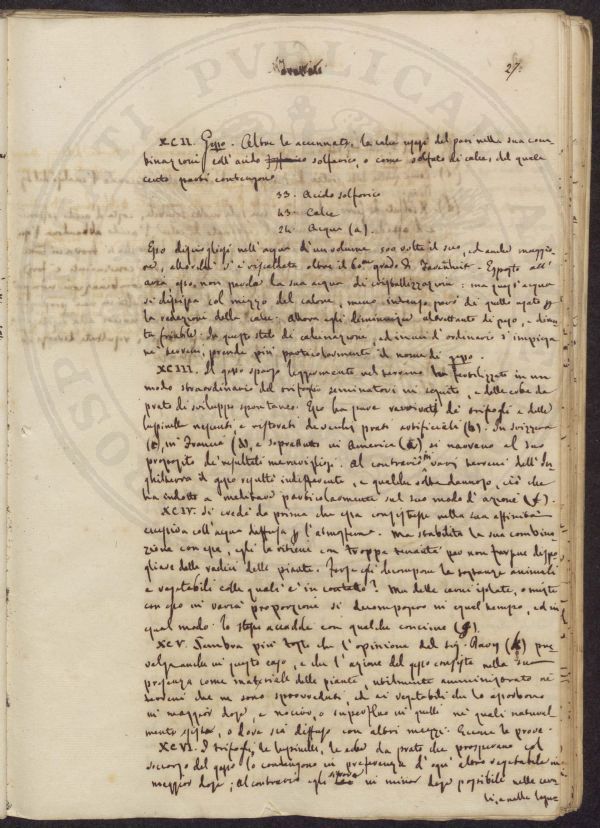 27.
XCII. Gesso. Oltre le accennate, la calce usasi del pari nella sua com-
binazione coll'acido solforico, o come solfato di calce, del quale
cento parti contengono
33. Acido solforico
43. Calce
24. Acqua (a).
Esso disciogliesi nell'acqua d'un volume 500 volte il suo, ed anche maggio-
re, allorchè s'è riscaldata oltre il 60.mo grado di Farenheit. Esposto all'
aria, esso, non perde la sua acqua di cristallizzazione: ma quest'acqua
si dissipa col mezzo del calore, meno intenso, però di quello usato per
la riduzione della calce. Allora egli diminuisce altrettanto di peso, e diven-
ta friabile. In questo stato di calcinazione, ed in cui d'ordinario s'impiega
ne' terreni, prende più particolarmente il nome di gesso.
XCIII. Il gesso sparso leggermente nel terreno ha fertilizzato in un
modo straordinario del trifoglio seminatovi in seguito, e delle erbe da
prato di sviluppo spontaneo. Esso ha pure ravvivati de' trifogli e delle
lupinelle nascenti, e ristorati de' vecchj prati artificiali (b). In Svizzera
(c), in Francia (d), e soprattutto in America (e) si narrano al suo
proposito de' risultati maravigliosi. Al contrario in varj terreni dell'In-
ghilterra il gesso risultò indifferente, e qualche volta dannoso, ciò che
ha indotto a meditare particolarmente sul suo modo d'azione (f).
XCIV. Si credè da prima che essa consistesse nella sua affinità
eccessiva coll'acqua diffusa per l'atmosfera. Ma stabilita la sua combina-
zione con essa, egli la ritiene con troppa tenacità per non farsene dispo-
gliare dalle radici delle piante. Forse egli decompone le sostanze animali
e vegetabili colle quali è in contatto? Ma delle carni isolate, o miste
con esso in varia proporzione si decomposero in egual tempo, ed in
egual modo: lo stesso accadde con qualche concime (g).
XCV. Sembra più tosto che l'opinione del sig. Davy (h) pre-
valga anche in questo caso, e che l'azione del gesso consista nella sua
presenza come materiale delle piante, utilmente amministrato ne'
terreni che ne sono sprovveduti, ed ai vegetabili che lo assorbono
in maggior dose, e nocivo, o superfluo in quelli ne' quali natural-
mente esista, o dove sia diffuso con altri mezzi. Eccone le prove.
XCVI. I trifogli, le lupinelle, le erbe da prato che prosperano col
soccorso del gesso lo contengono in preferenza d'ogni altro vegetabile in
maggior dose; al contrario egli trovasi in minor dose possibile nelle cerea-
li, e nelle legu-